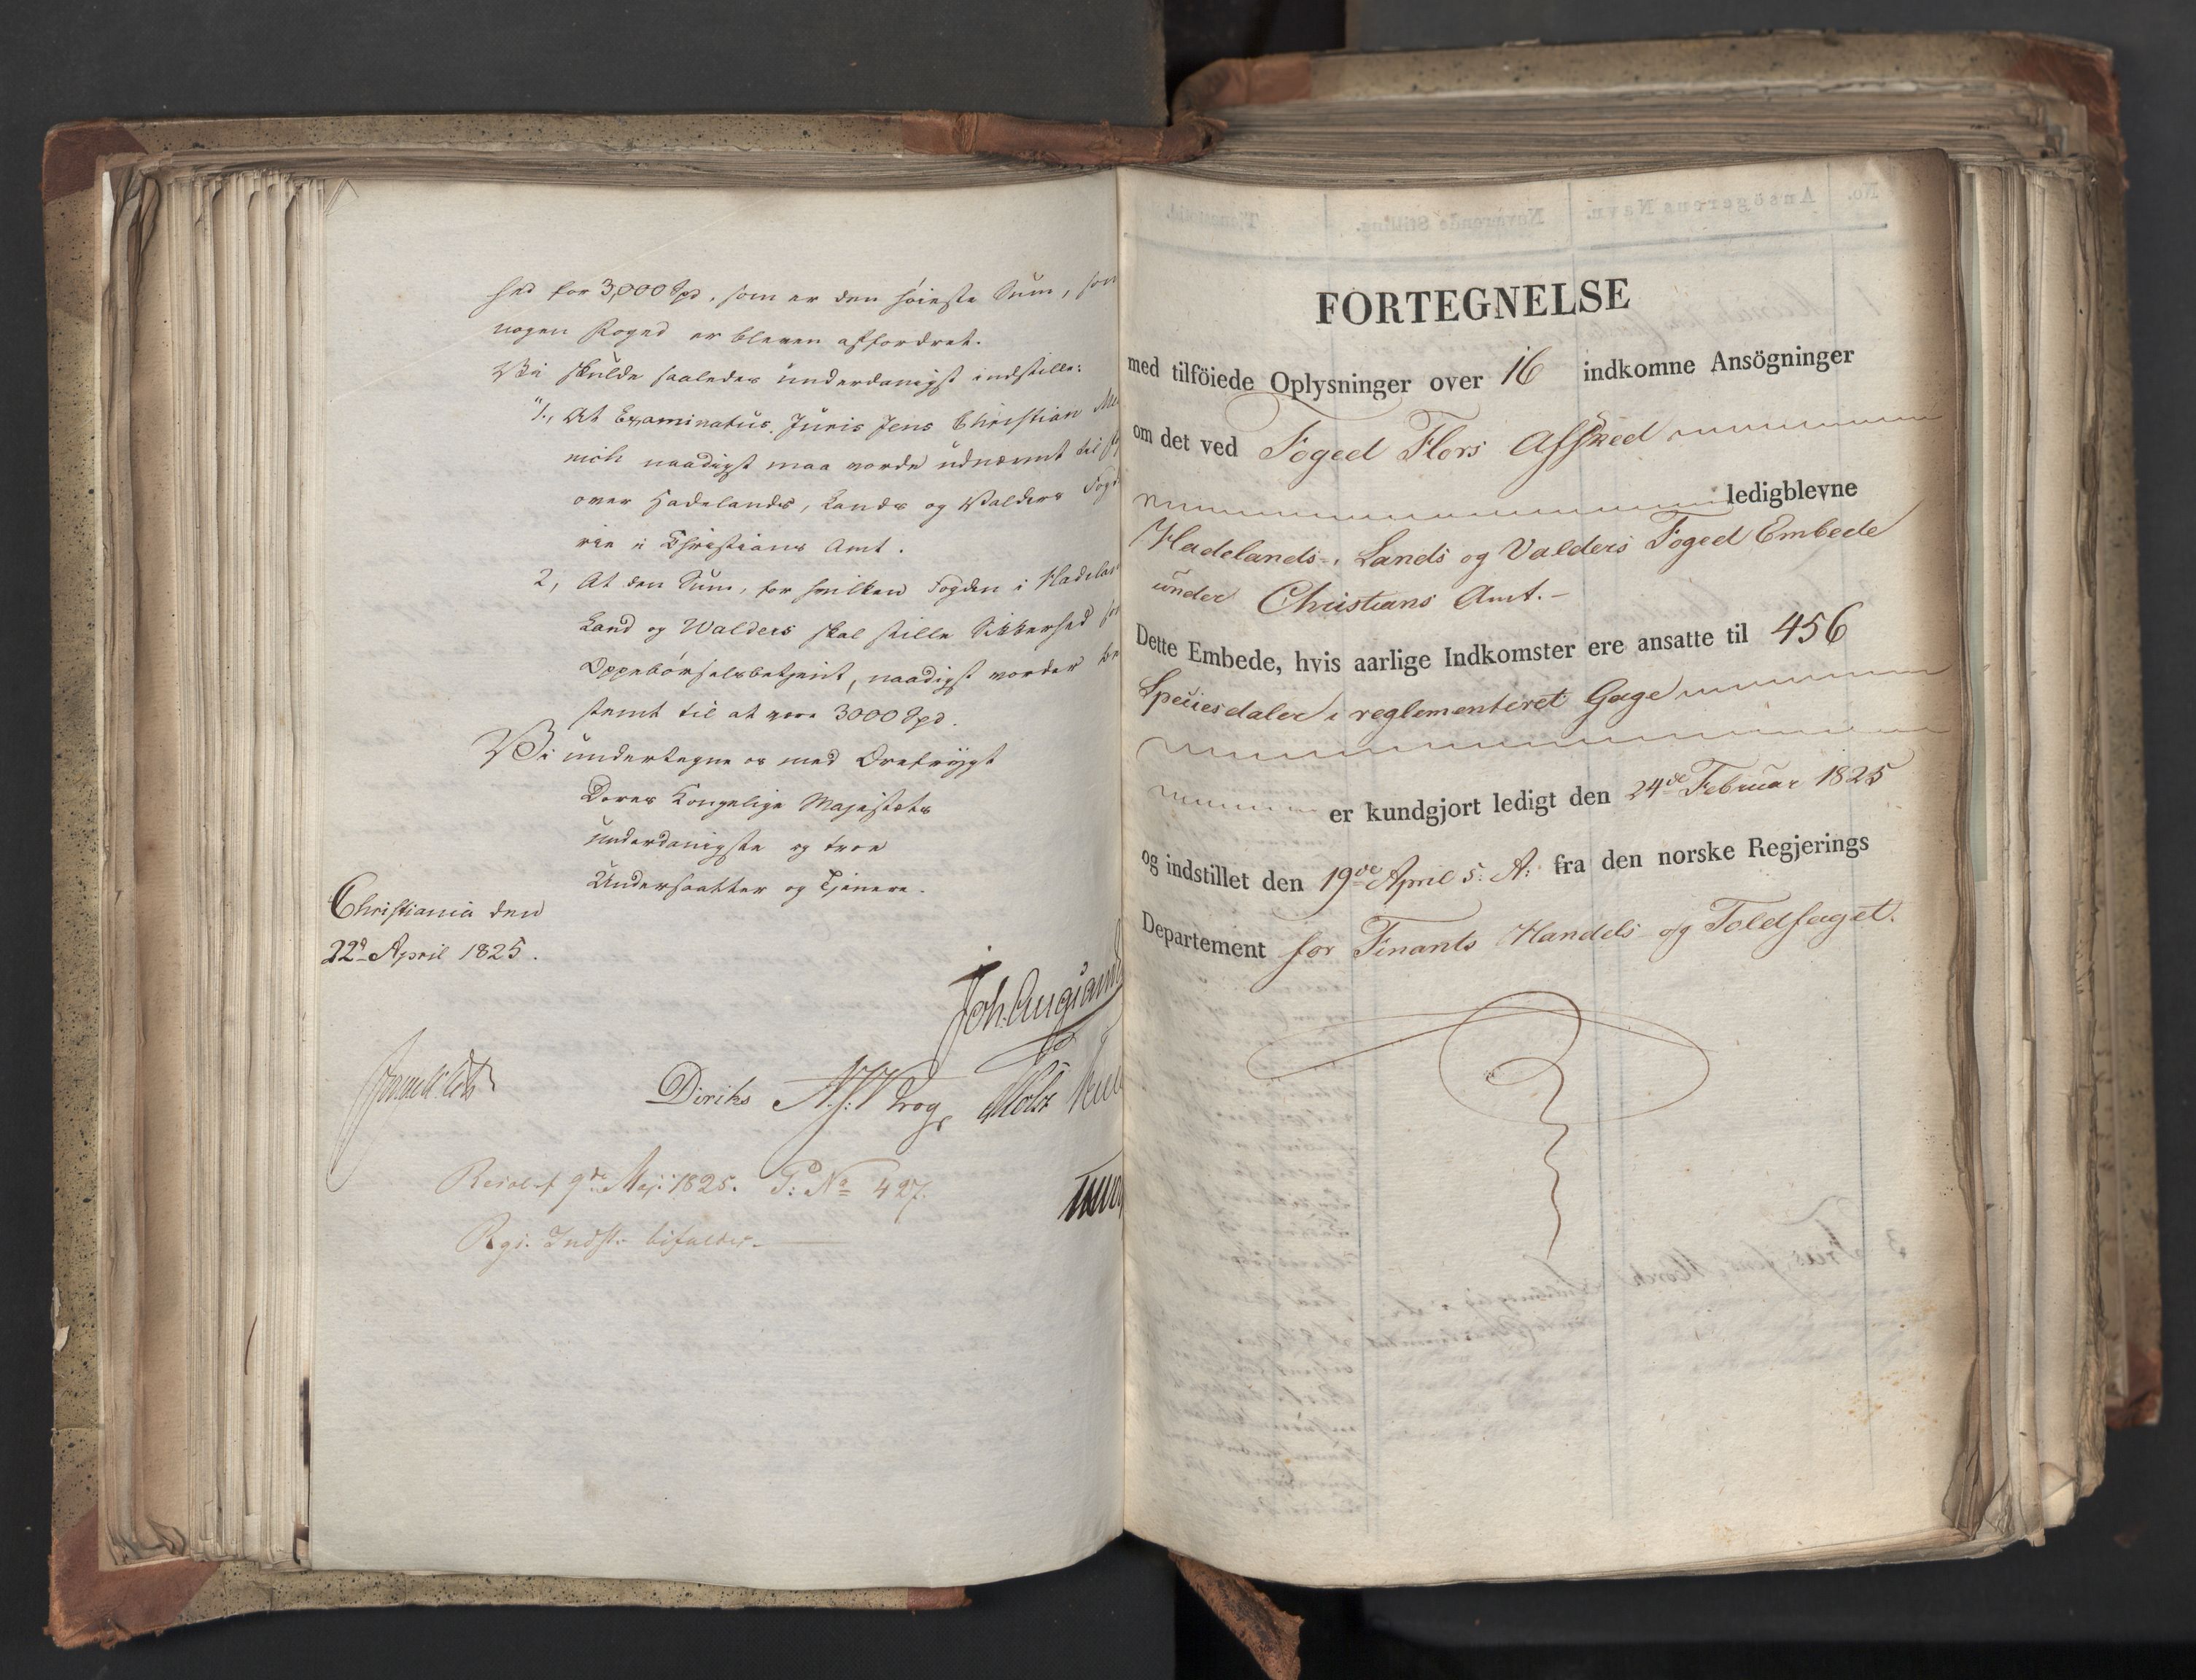 hed for 3,000 Spd, som er den høieste Sum, som
nogen Foged er bleven affordret.
Vi skulde saaledes underdanigst indstille:
"1., At Examinatus Juris Jens Christian
nich naadigst maa vorde udnævnt til
over Hadelands, Lands og Valders
rie i Christians Amt.
2, At den Sum, for hvilken Fogden i
Land og Walders skal stille Sikkerhed
Oppebørselsbetjent, naadigst vorder
stemt til at være 3000 Spd.
Vi undertegne os med Ærefrygt
Deres Kongelige Majestæts
underdanigste og troe
Undersaatter og Tjenere.
Christiania den
22d April 1825.
Diriks
Resol. af 9de Maj: 1825. P: No 427.
Rgs. Indst. bifaldes.
FORTEGNELSE
med tilföiede Oplysninger over 16 indkomne Ansögninger
om det ved Foged Flors Afsked
ledigblevne
Hadelands-, Lands og Valders Foged Embede
under Christians Amt.-
Dette Embede, hvis aarlige Indkomster ere ansatte til 456
Speciesdaler i reglementeret Gage
er kundgjort ledigt den 24de Februar 1825
og indstillet den 19de April s: A: fra den norske Regjerings
Departement for Finants Handels- og Toldfaget.